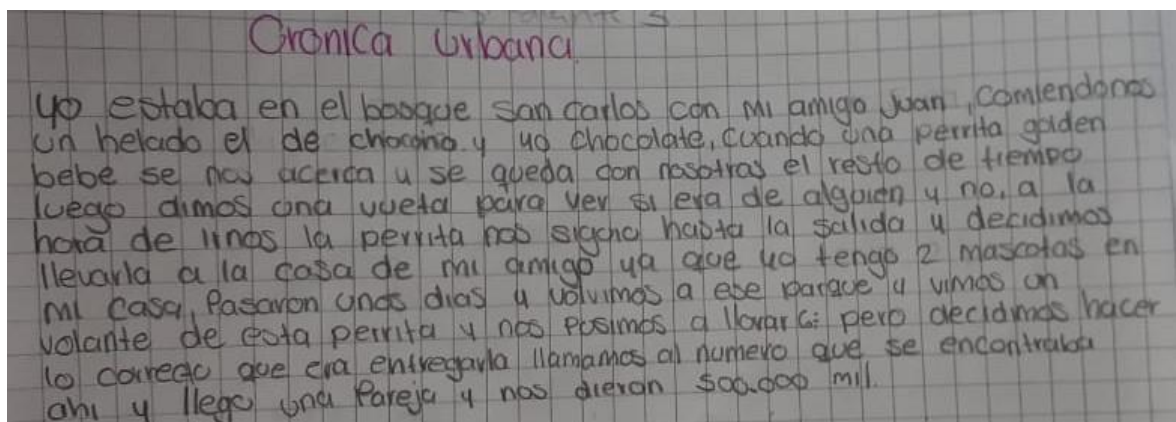 Cronica Urbana
yo estaba en el bosque San carlos con mi amigo Juan, comiendonos
un helado el de chocono y yo chocolate, cuando una perrita golden
bebe se nos acerca y se queda con nosotras el resto de tiempo
luego dimos una vueta para ver si era de alguien y no, a la
hora de irnos la perrita nos siguio hasta la salida y decidimos
llevarla a la casa de mi amigo ya que yo tengo 2 mascotas en
mi casa, Pasaron unos dias y volvimos a ese parque y vimos un
volante de esta perrita y nos posimos a llorar :c pero decidimos hacer
lo correcto que era entregarla llamamos al numero que se encontraba
ahi y llego una Pareja y nos dieron 500.000 mil.